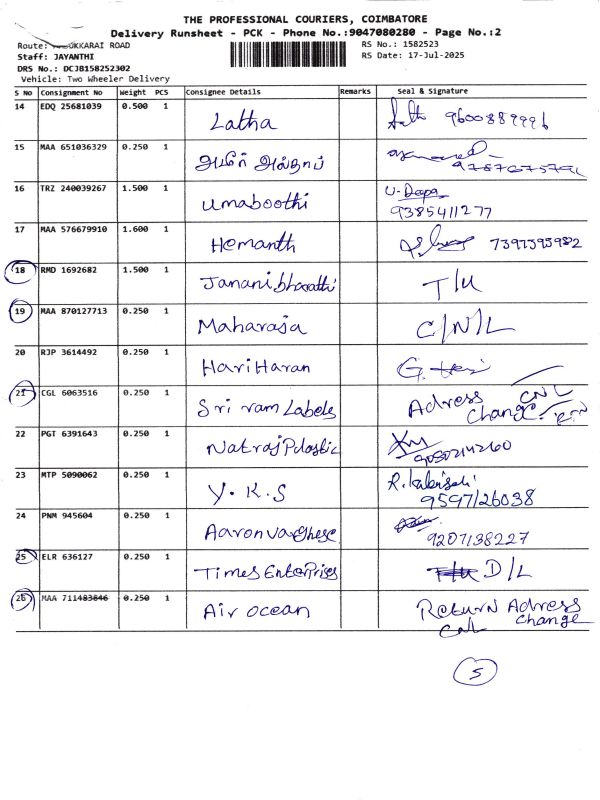 THE PROFESSIONAL COURIERS, COIMBATORE
Delivery Runsheet - PCK - Phone No.:9047080280 - Page No.:2
Route: KKARAI ROAD
RS No.: 1582523
Staff: JAYANTHI
RS Date: 17-Jul-2025
DRS No.: DCJB158252302
Vehicle: Two Wheeler Delivery
S No Consignment No Weight PCS Consignee Details Remarks Seal & Signature
14 EDQ 25681039 0.500 1 Latha 9600889996
15 MAA 651036329 0.250 1 அமீர் அல்தாப் 9787675791
16 TRZ 240039267 1.500 1 Umaboothi U-Deepa
9385411277
17 MAA 576679910 1.600 1 Hemanth 7397395982
18 RMD 1692682 1.500 1 Jananibharathi T/U
19 MAA 870127713 0.250 1 Maharasa C/N/L
20 RJP 3614492 0.250 1 Hari Haran
21 CGL 6063516 0.250 1 Sri ram Labels Adress CNL
Change
22 PGT 6391643 0.250 1 Natraj Plastic
23 MTP 5090062 0.250 1 Y.K.S
9597126038
24 PNM 945604 0.250 1 Aaron varghese 9207138227
25 ELR 636127 0.250 1 Times Enterprises D/L
26 MAA 711483846 0.250 1 Air ocean Return Adress
Change
CNL
5